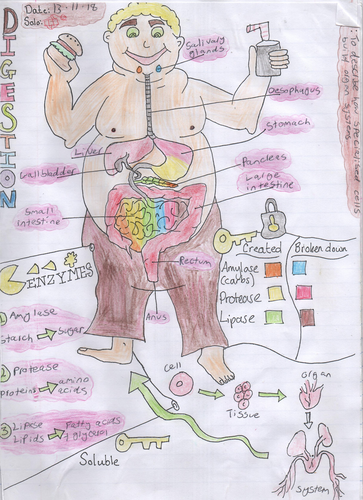 DIGESTION
Date: 13-11-18
Solo:
To describe specialised cells
build organ systems
Salivary
glands
Oesophagus
Stomach
Liver
Gallbladder
Pancreas
Large
intestine
Small
intestine
Rectum
Anus
ENZYMES
Created
Broken down
Amylase
(carbs)
Protease
Lipase
1 Amylase
Starch
Sugar
2 Protease
proteins
amino
acids
3 Lipase
Lipids
Fatty acids
+ glycerol
Soluble
Cell
Tissue
Organ
System